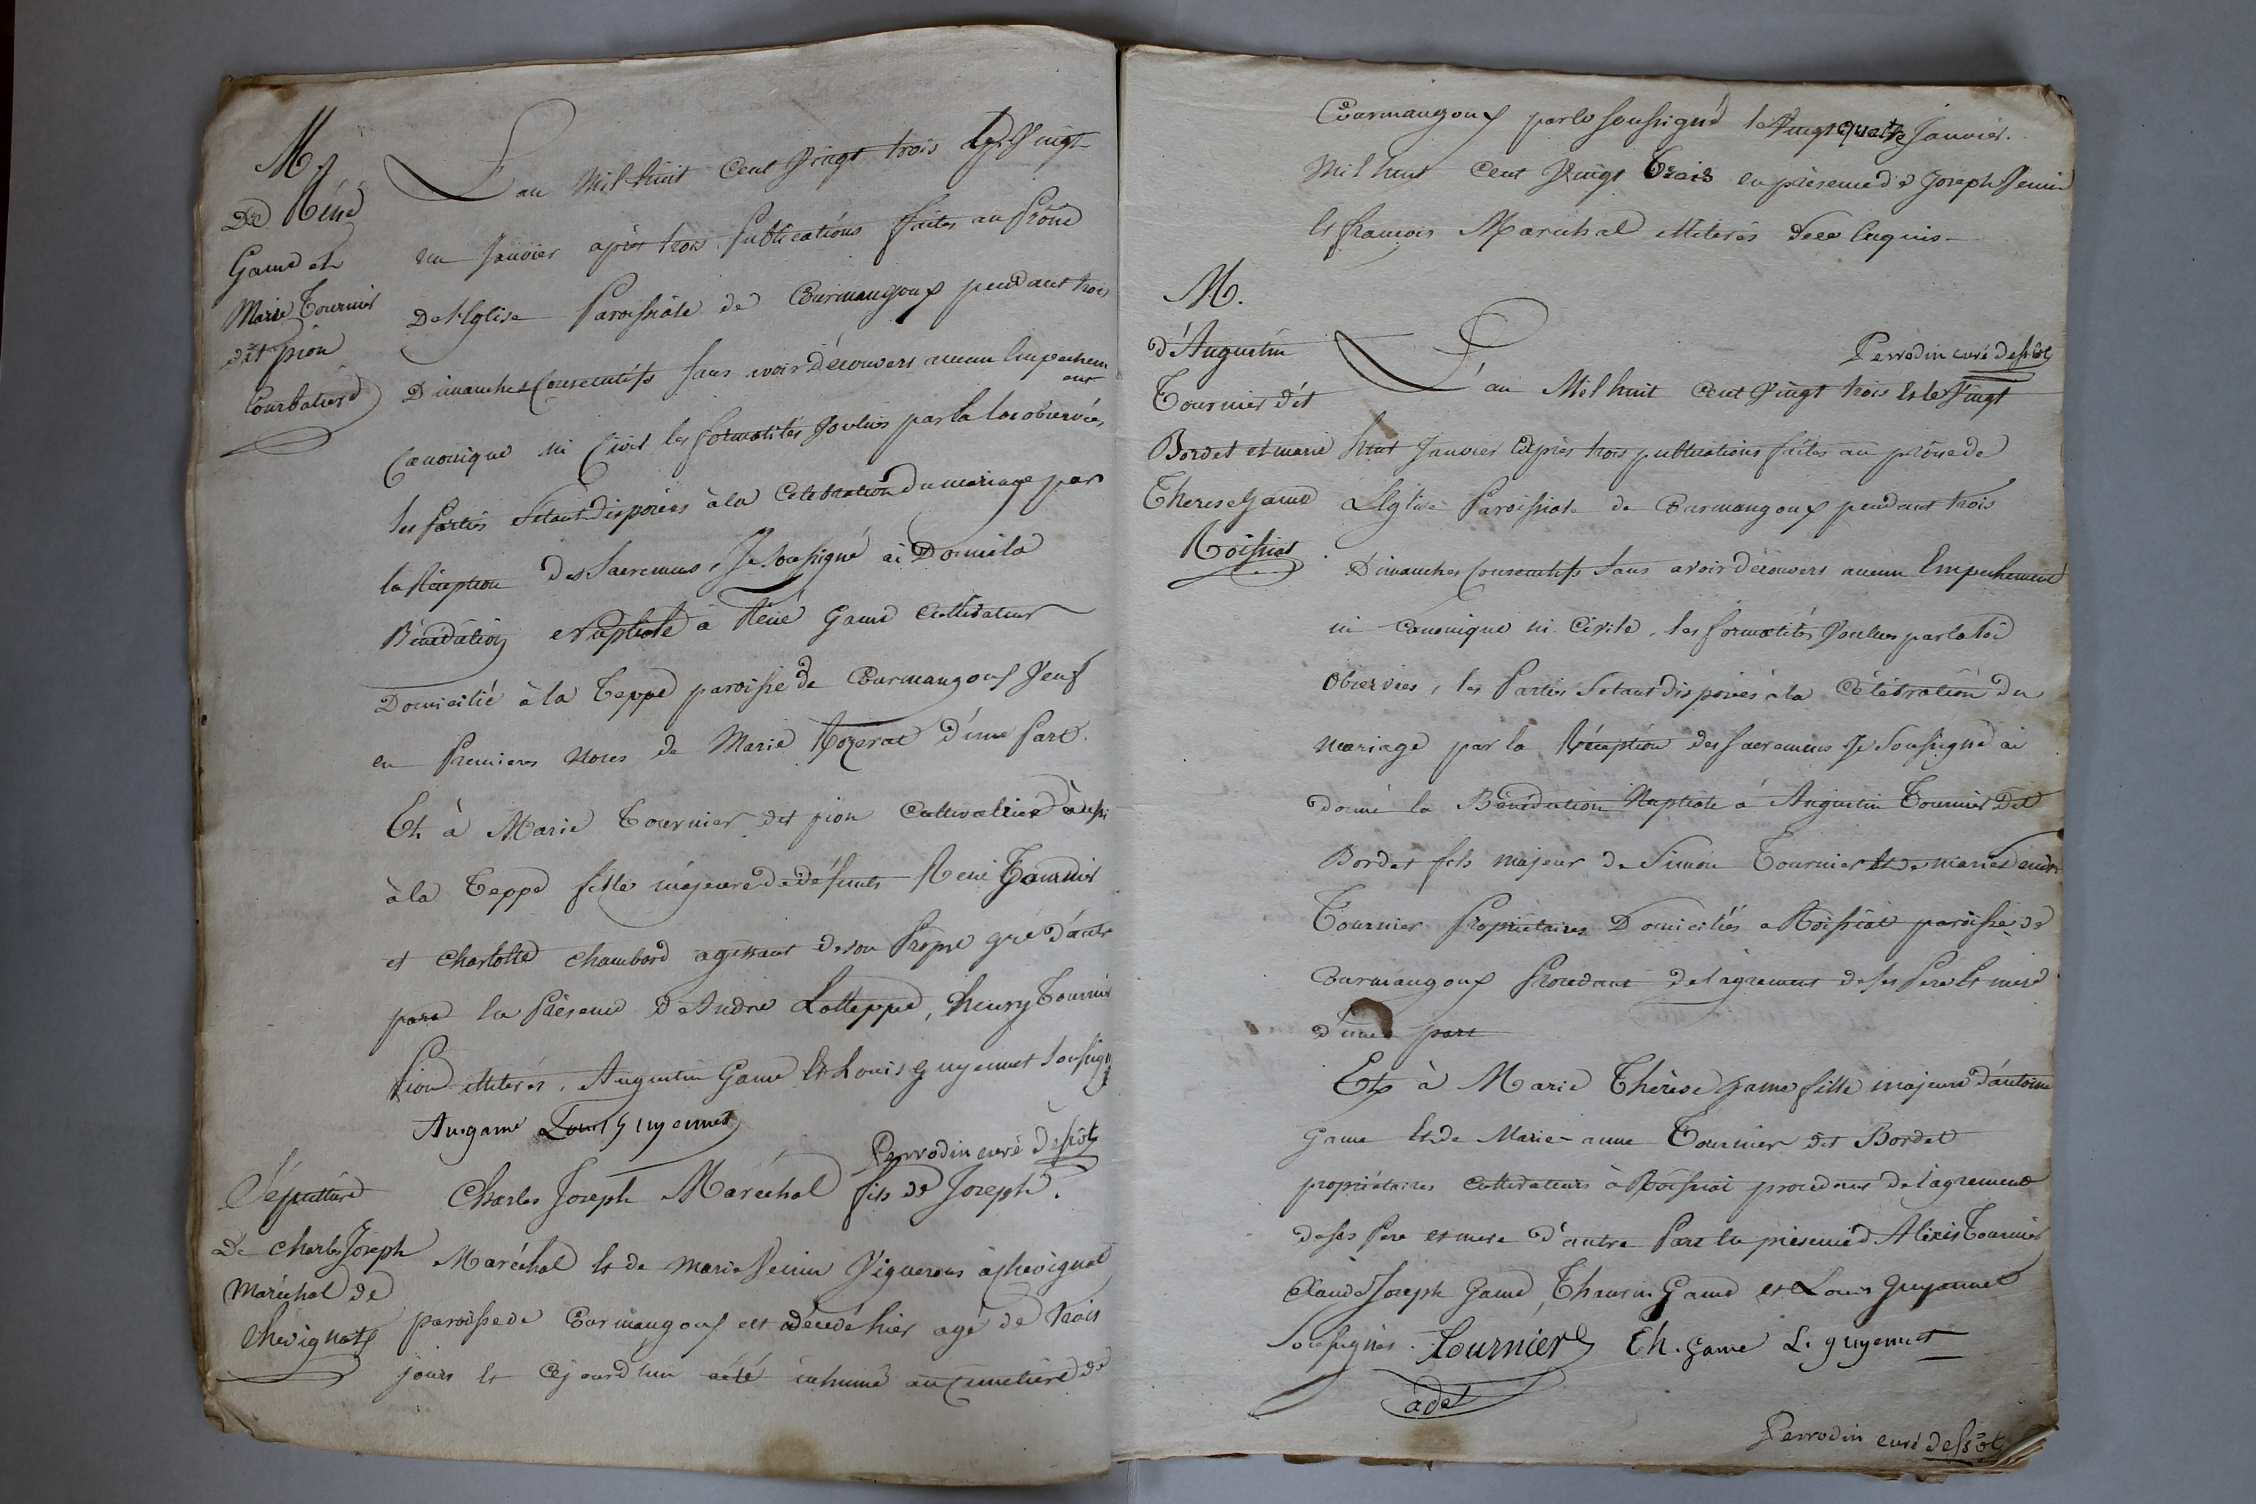 M.
De Réné
Game et
Marie Tournier
dit pion
Courbatière
L'an Mil huit Cent Vingt trois le Vingt
un Janvier après trois Publications faites au Prône
De l'Eglise Paroissiale de Courmangoux pendant trois
Dimanches Consecutifs sans avoir découvert aucun Empechem
ent
Canonique ni Civil les formalités Voulues par la loi observées
les Parties S'étant disposées à la Celebration du mariage par
la Réception des Sacremens, Je Soussigné ai Donné la
Bénédiction Nuptiale à Réné Game Cultivateur
Domicilié à la Teppe paroisse de Courmangoux Veuf
en Premieres Noces de Marie Rozerat d'une Part.
Et à Marie Tournier dit pion Cultivatrice aussi
à la Teppe fille majeure de défunts Réné Tournier
et Charlotte Chambard agissant de son Propre gré d'autre
part la Présence D'André Latteppe, henry Tournier
Pion illiterés, Augustin Game Et Louis guyennet Soussign
Au. game Louis guyennet
Perrodin curé desst
Sépulture
De Charles Joseph
Maréchal de
Chevignat
Charles Joseph Maréchal fils de Joseph
Maréchal Et de Marie Perrin Vignerons à Chevignat
paroisse de Courmangoux est décédé hier agé de trois
jours Et Cejourd'hui a été inhumé au Cimetière de
Courmangoux par le Soussigné le Vingt quatre Janvier
Mil huit Cent Vingt Trois en présence de Joseph Perrin
Et françois Maréchal illiterés de ce Enquis
Perrodin curé desst
M.
d'Augustin
Tournier dit
Bordet et marie
Therese Game
Roissiat
L'an Mil huit Cent Vingt trois Et le Vingt
huit Janvier Après trois publications faites au prône de
L'Eglise Paroissiale de Courmangoux pendant trois
Dimanches Consecutifs Sans avoir découvert aucun Empechement
ni Canonique ni Civile, les formalités Voulues par la loi
Observées, les Parties S'étant disposées à la Célébration du
mariage par la Réception des Sacremens Je Soussigné ai
donné la Bénédiction Nuptiale à Augustin Tournier Dit
Bordet fils majeur de Simon Tournier Et de Marie
Tournier Propriétaires Domiciliés a Roissiat paroisse de
Courmangoux Procedant de l'agrement de ses Pere Et mere
d'une part
Et à Marie Thérèse Game fille majeure d'antoine
Game Et de Marie-anne Tournier dit Bordet
propriétaires Cultivateurs à Roissiat procedant de l'agrement
de ses Pere et mere d'autre Part la présence d'Alexis Tournier
Claude Joseph Game, Thaurin Game et Louis Guyennet
Soussignés. Tournier Th. Game L. guyennet
adet
Perrodin curé desst